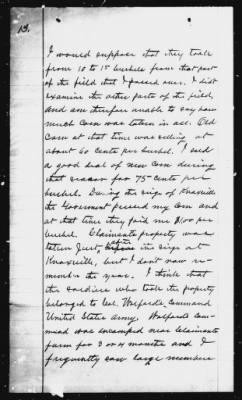 13.
I would suppose that they took
from 10 to 15 bushels from that part
of the field that I passed over, I didt
examine the other parts of the field,
and am therefore unable to say how
much Corn was taken in all. Old
Corn at that time was selling at
about 60 cents per bushel. I sold
a good deal of new Corn during
that season for 75 cents per
bushel. During the siege of Knoxville
the Government pressed my Corn and
at that time they paid me $1.00 per
bushel. Claimants property was
taken Just after the siege at
Knoxville, but I don't now re-
member the year. I think that
the soldiers who took the property
belonged to Col. Wolfords Command
United States Army. Wolfords Com-
mand was encamped near Claimants
farm for 3 or 4 months and I
frequently saw large numbers